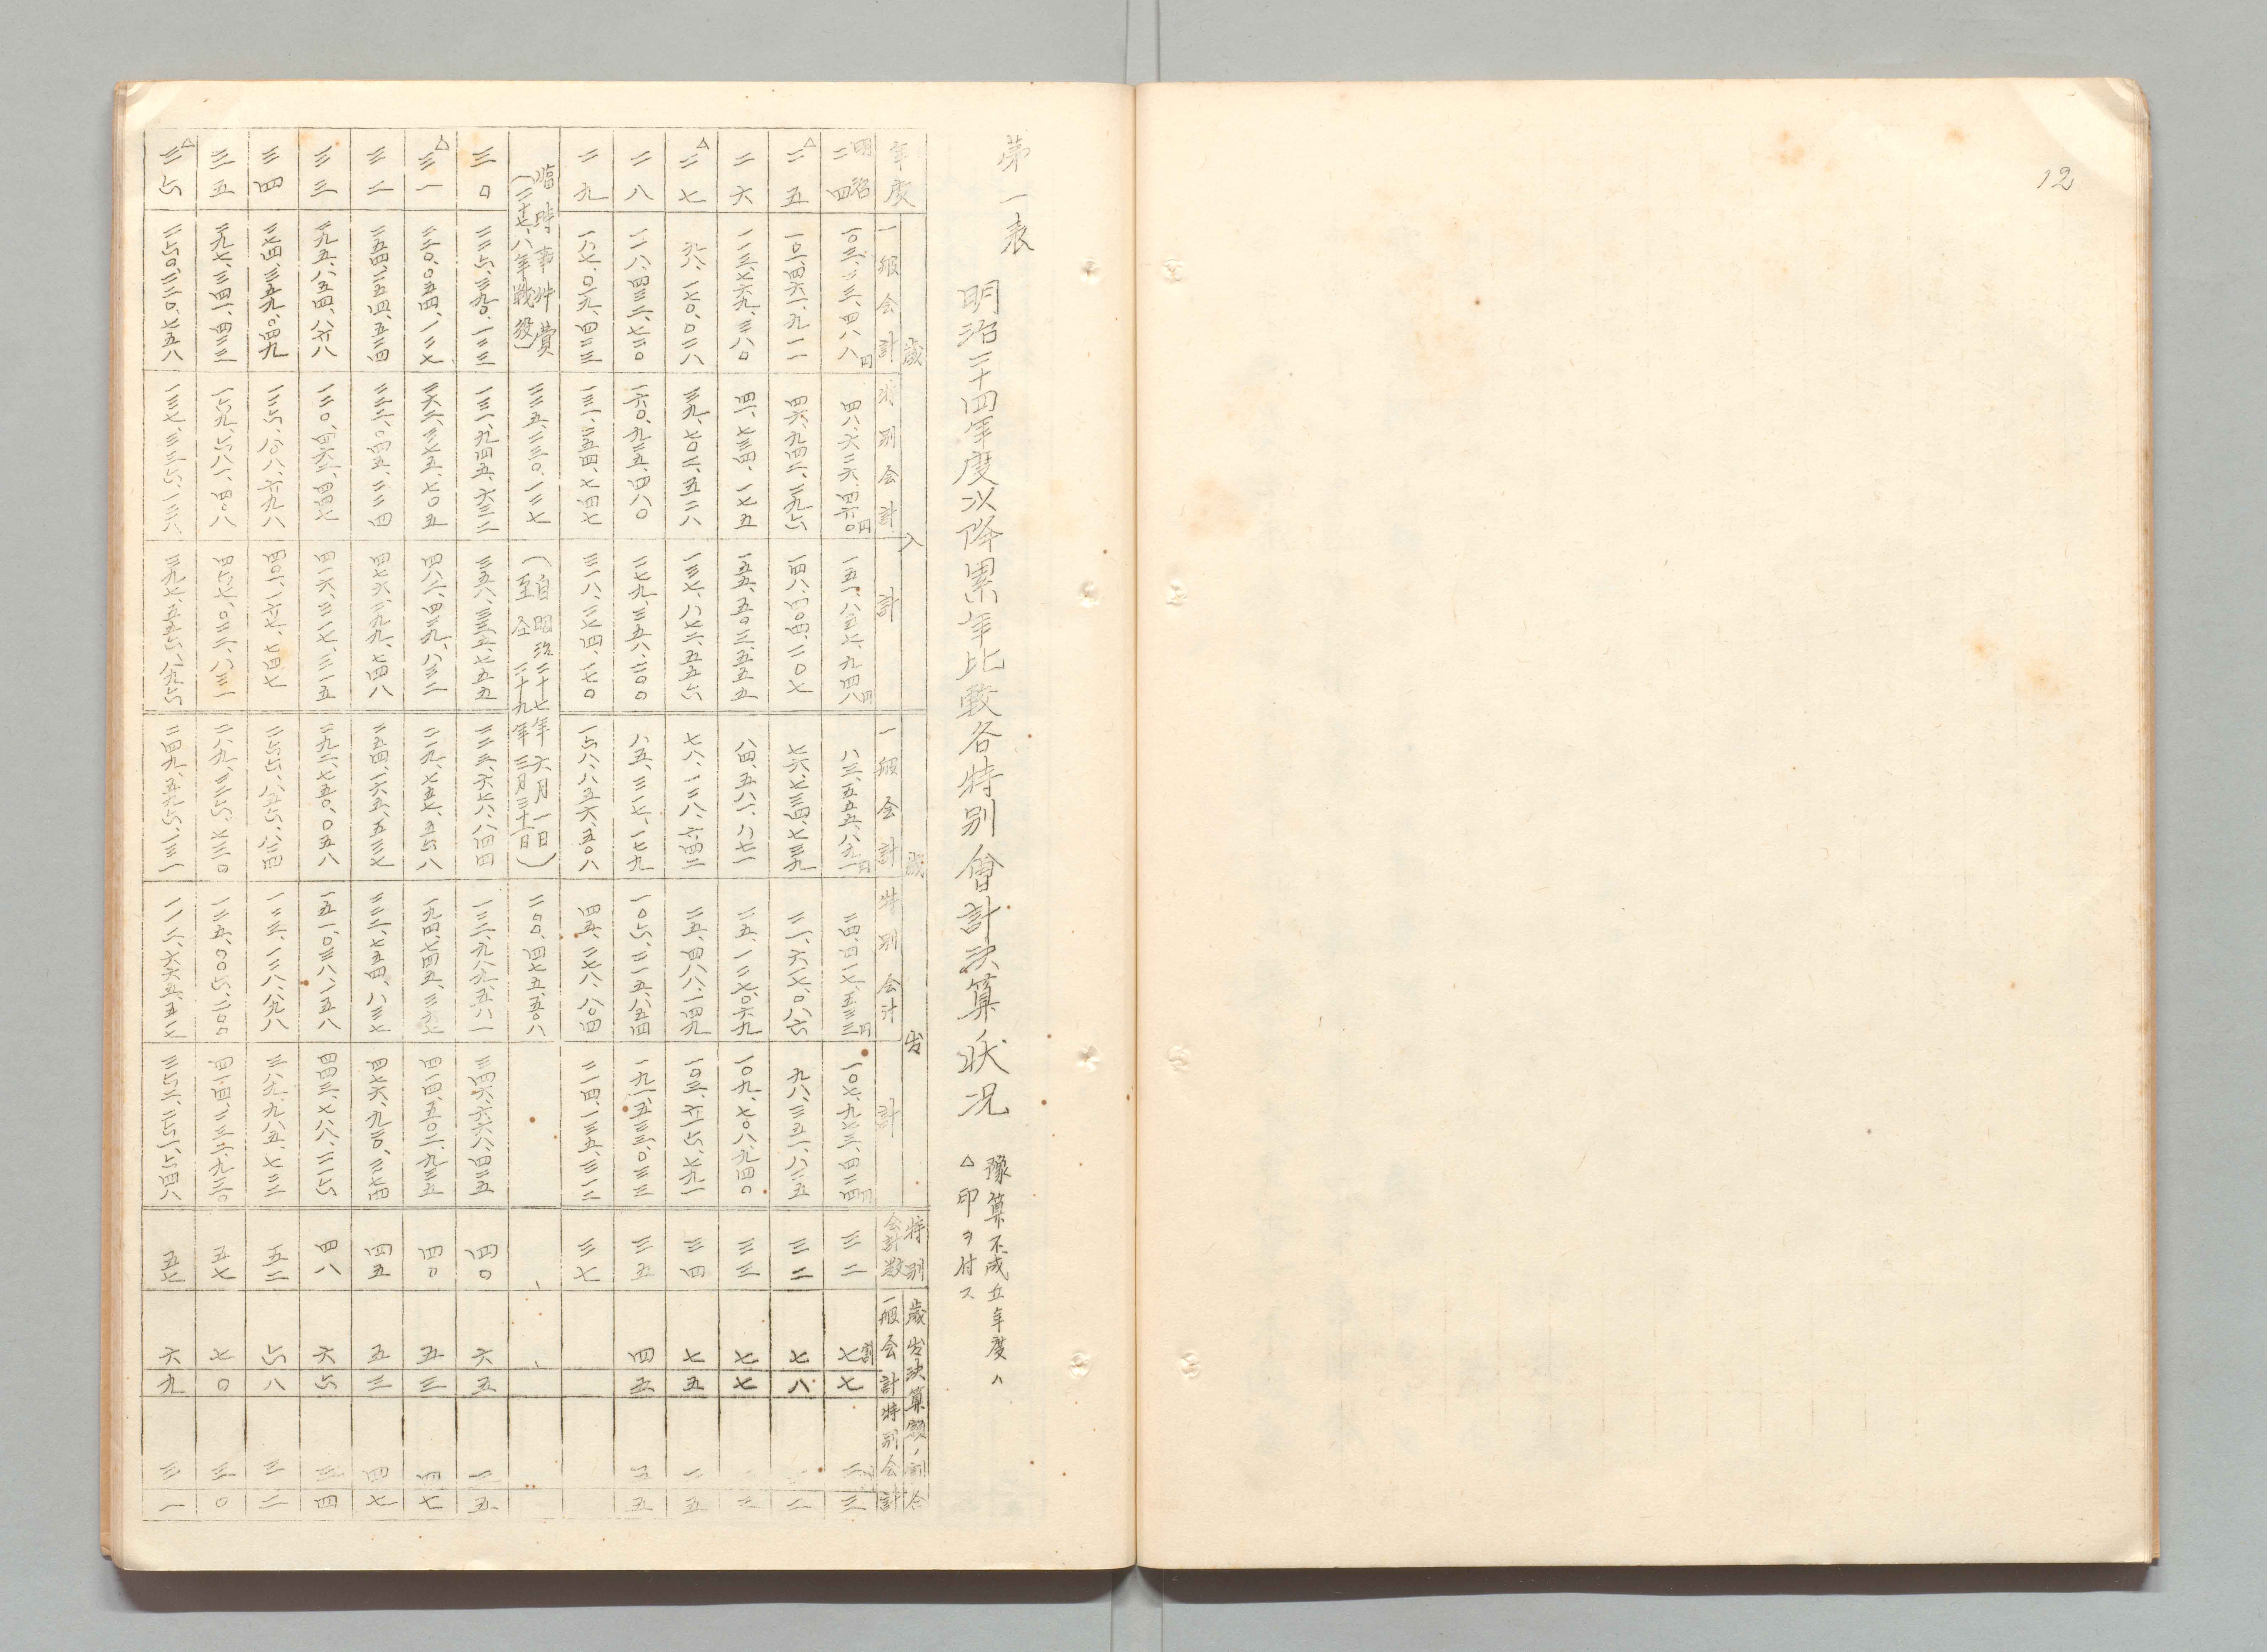 12
第一表
明治二十四年度以降累年比較各特別會計決算状況
豫算不成立年度ハ
△印ヲ付ス
年度 歳入 一般会計 特別会計 計 歳出 一般会計 特別会計 計 特別会計数 歳出決算額ノ割合 一般会計 特別会計
明治二四 一〇三、二三一、四八八円 四八、六二六、四六〇円 一五一、八五七、九四八円 八三、五五五、八九一円 二四、四一七、五三三円 一〇七、九七三、四二四円 三二 七割七 二三
△二五 一〇一、四六一、九一一 四六、九四二、二九六 一四八、四〇四、二〇七 七六、七三四、七三九 二一、六一七、〇八六 九八、三五一、八二五 三二 七八 二二
二六 一一三、七六九、三八〇 四一、七三四、一七五 一五五、五〇三、五五五 八四、五八一、八七一 二五、一二七、〇六九 一〇九、七〇八、九四〇 三三 七七 二三
△二七 九八、一七〇、〇二八 三九、七〇二、五二八 一三七、八七二、五五六 七八、一二八、六四二 二五、四八八、一四九 一〇三、六一六、七九一 三四 七五 二五
二八 一一八、四三二、七二〇 一六〇、九二五、四八〇 二七九、三五八、二〇〇 八五、三一七、一七九 一〇六、二一五、八五四 一九一、五三三、〇三三 三五 四五 五五
二九 一八七、〇一九、四二三 一三一、二五四、七四七 三一八、二七四、一七〇 一六八、八五六、五〇八 四五、二七八、八〇四 二一四、一三五、三一二 三七
臨時事件費
(二十七、八年戦役) 二二五、二三〇、一二七 (自明治二十七年六月一日
至仝二十九年三月三十一日) 二〇〇、四七五、五〇八
三〇 二二六、三九〇、一二三 一三一、九四五、六三二 三五八、三三五、七五五 二二三、六七八、八四四 一二二、九八九、五八一 三四六、六六八、四二五 四〇 六五 五
△三一 二二〇、〇五四、一二七 二六二、三七五、七〇五 四八二、四二九、八三二 二一九、七五七、五六八 一九四、七四五、三六七 四一四、五〇二、九三五 四〇 五三 四七
三二 二五四、二五四、五二四 二二二、〇四五、二二四 四七六、二九九、七四八 二五四、一六五、五三七 二二二、七五四、八三七 四七六、九二〇、三七四 四五 五三 四七
三三 二九五、八五四、八六八 一二〇、四六二、四四七 四一六、三一七、三一五 二九二、七五〇、〇五八 一五一、〇三八、一五八 四四三、七八八、二一六 四八 六六 三四
三四 二七四、三五九、〇四九 一二六、八〇八、六九八 四〇一、一六七、七四七 二六六、八五六、八二四 一二三、一二八、八九八 三八九、九八五、七二二 五二 六八 三二
三五 二九七、三四一、四二三 一六九、六八一、四〇八 四六七、〇二二、八三一 二八九、二二六、七三〇 一二五、〇〇六、二〇〇 四一四、二三二、九三〇 五七 七〇 三〇
△三六 二六〇、二二〇、七五八 一三七、三三六、一三八 三九七、五五六、八九六 二四九、五九六、一三一 一一二、六六五、五一七 三六二、二六一、六四八 五七 六九 三一